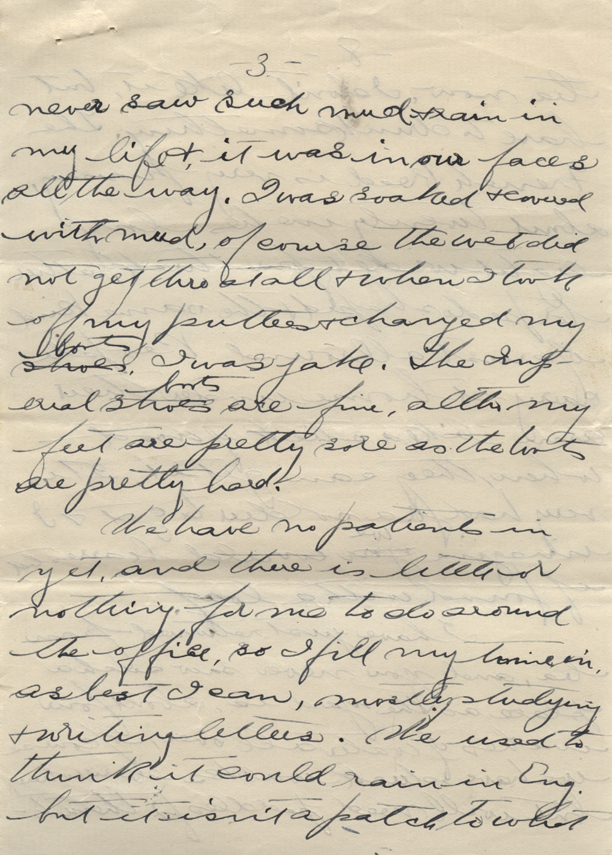 -3-
never saw such mud & rain in
my life &, it was in our faces
all the way. I was soaked & covered
with mud, of course the wet did
not get thro at all & when I took
off my puttees & changed my
boots
shoes, I was jake. The Imp-
boots
erial shoes are fine, altho my
feet are pretty sore as the boots
are pretty hard.
We have no patients in
yet, and there is little or
nothing for me to do around
the office, so I fill my time in,
as best I can, mostly studying
& writing letters. We used to
think it could rain in Eng.
but it isn't a patch to what